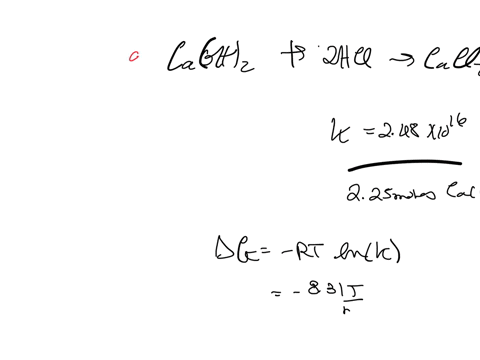 Ca(OH)₂ + 2HCl → CaCl₂
K = 2.48 × 10¹⁶
2.25 moles Cal
ΔG = -RT ln(K)
= - 8.31 J